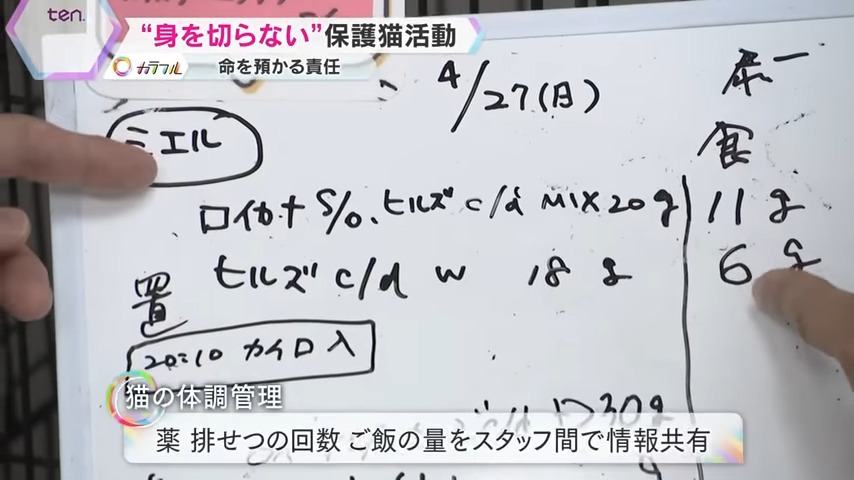 ten.
“身を切らない”保護猫活動
カラフル 命を預かる責任
4/27(日)
ミエル
食
ロイカナ S/O、ヒルズ c/d MIX 20g 11g
ヒルズ c/d w 18g 6g
置
20:10 カイロ入
猫の体調管理
薬 排せつの回数 ご飯の量をスタッフ間で情報共有